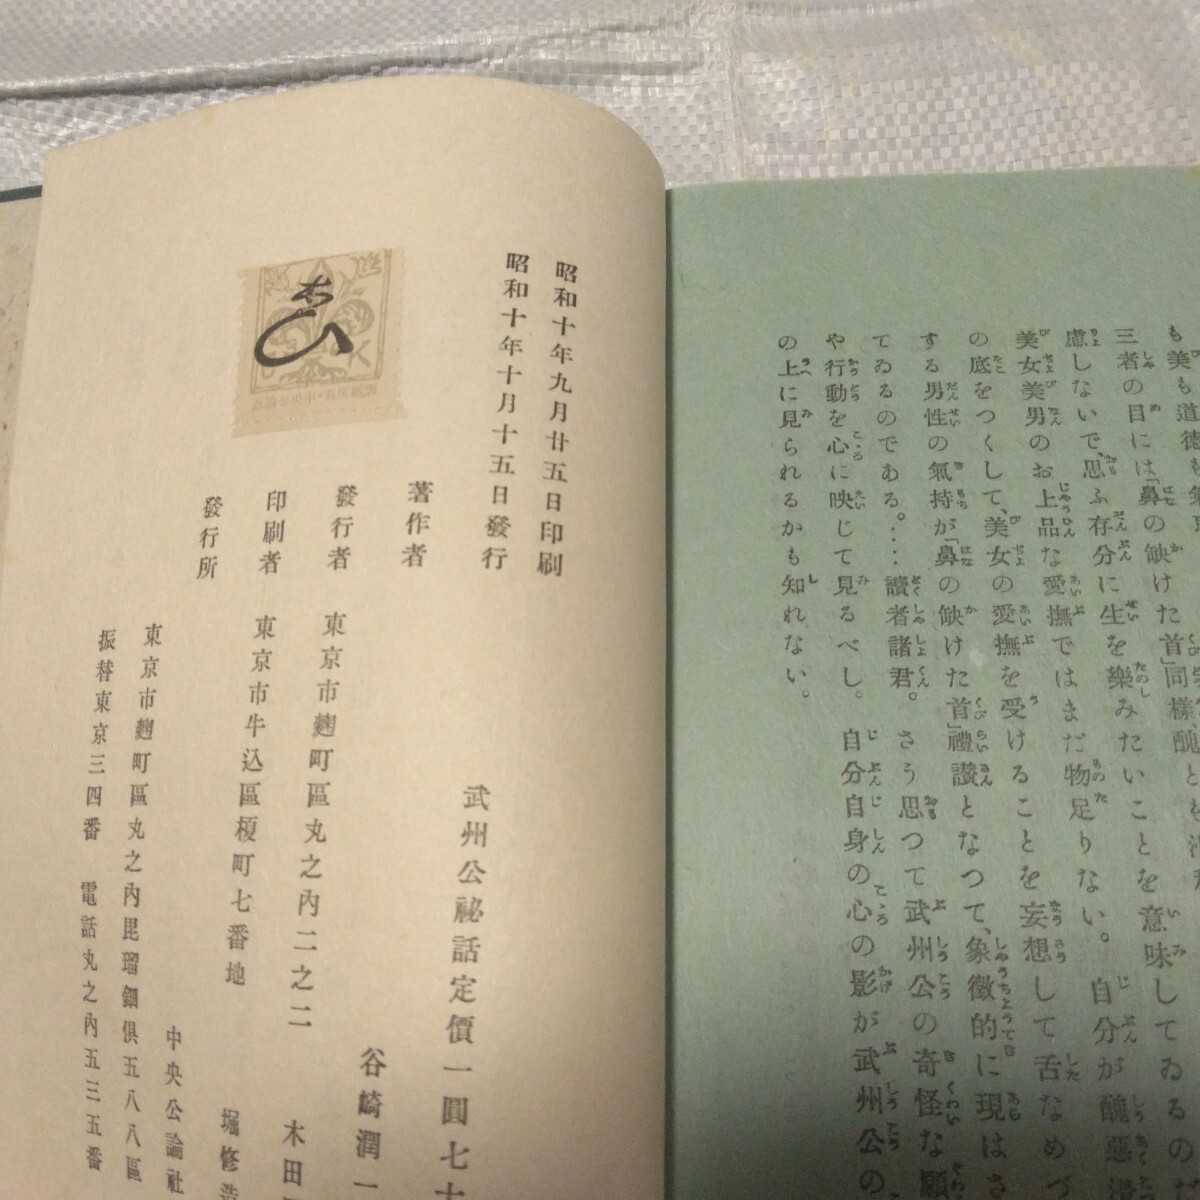 も美も道德も
三者の目には「鼻の缺けた首」同樣、醜
慮しないで、思ふ存分に生を樂みたいことを意味してゐるの
美女美男のお上品な愛撫ではまだ物足りない。自分が醜惡
の底をつくして、美女の愛撫を受けることを妄想して舌なめづ
する男性の氣持が「鼻の缺けた首」禮讃となつて、象徴的に現はさ
てゐるのである。‥‥讀者諸君。さう思つて武州公の奇怪な願
や行動を心に映じて見るべし。自分自身の心の影が武州公の
の上に見られるかも知れない。
昭和十年九月廿五日印刷
昭和十年十月十五日發行
武州公祕話定價一圓七十
著作者 谷崎潤一
發行者 東京市麴町區丸之內二之二 木田
印刷者 東京市牛込區榎町七番地 堀修造
發行所 中央公論社
東京市麴町區丸之內毘瑠鋼俱五八八區
振替東京三四番 電話丸之內五三五番